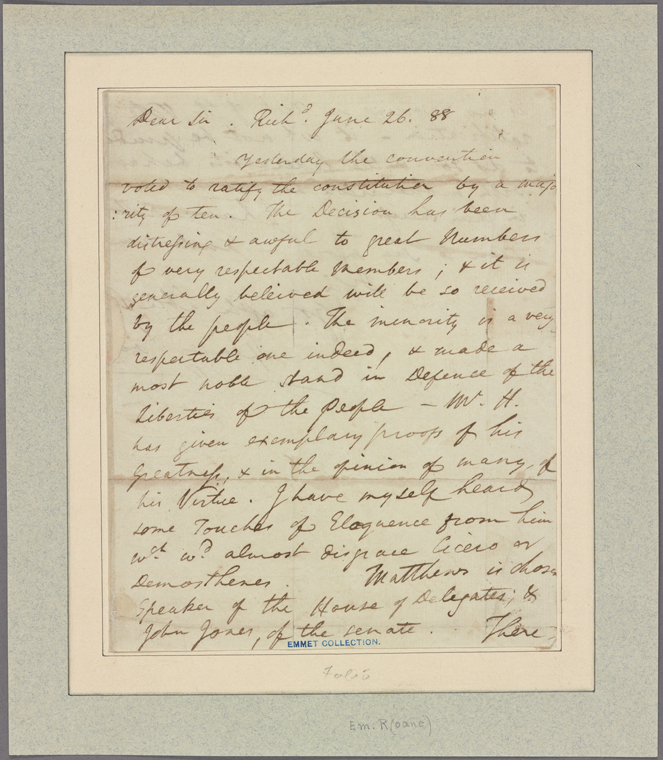 Dear Sir. Richd. June 26. 88
Yesterday the convention
voted to ratify the constitution by a majo
:rity of ten. The Decision has been
distressing & aweful to great Numbers
of very respectable Members; & it is
generally beleived will be so received
by the people. The minority is a very
respectable one indeed, & made a
most noble stand in Defence of the
Liberties of the People — Mr. H.
has given exemplary proofs of his
Greatness, & in the opinion of many, of
his Virtue. I have myself heard
some Touches of Eloquence from him
wch. wd. almost disgrace Cicero or
Demosthenes. Matthews is chosen
Speaker of the House of Delegates; &
John Jones, of the senate. There
EMMET COLLECTION.
Folio
Em. R(oane)